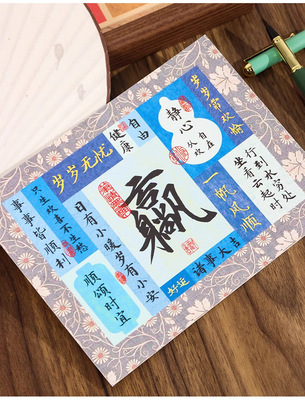 岁岁无忧
健康
自由
静心
自在
从欢
岁岁常欢愉
行到水穷处
坐看云起时
一帆风顺
只生欢喜不生愁
事事皆顺利
日有小暖
岁有小安
赢
顺颂时宜
好运
诸事大吉